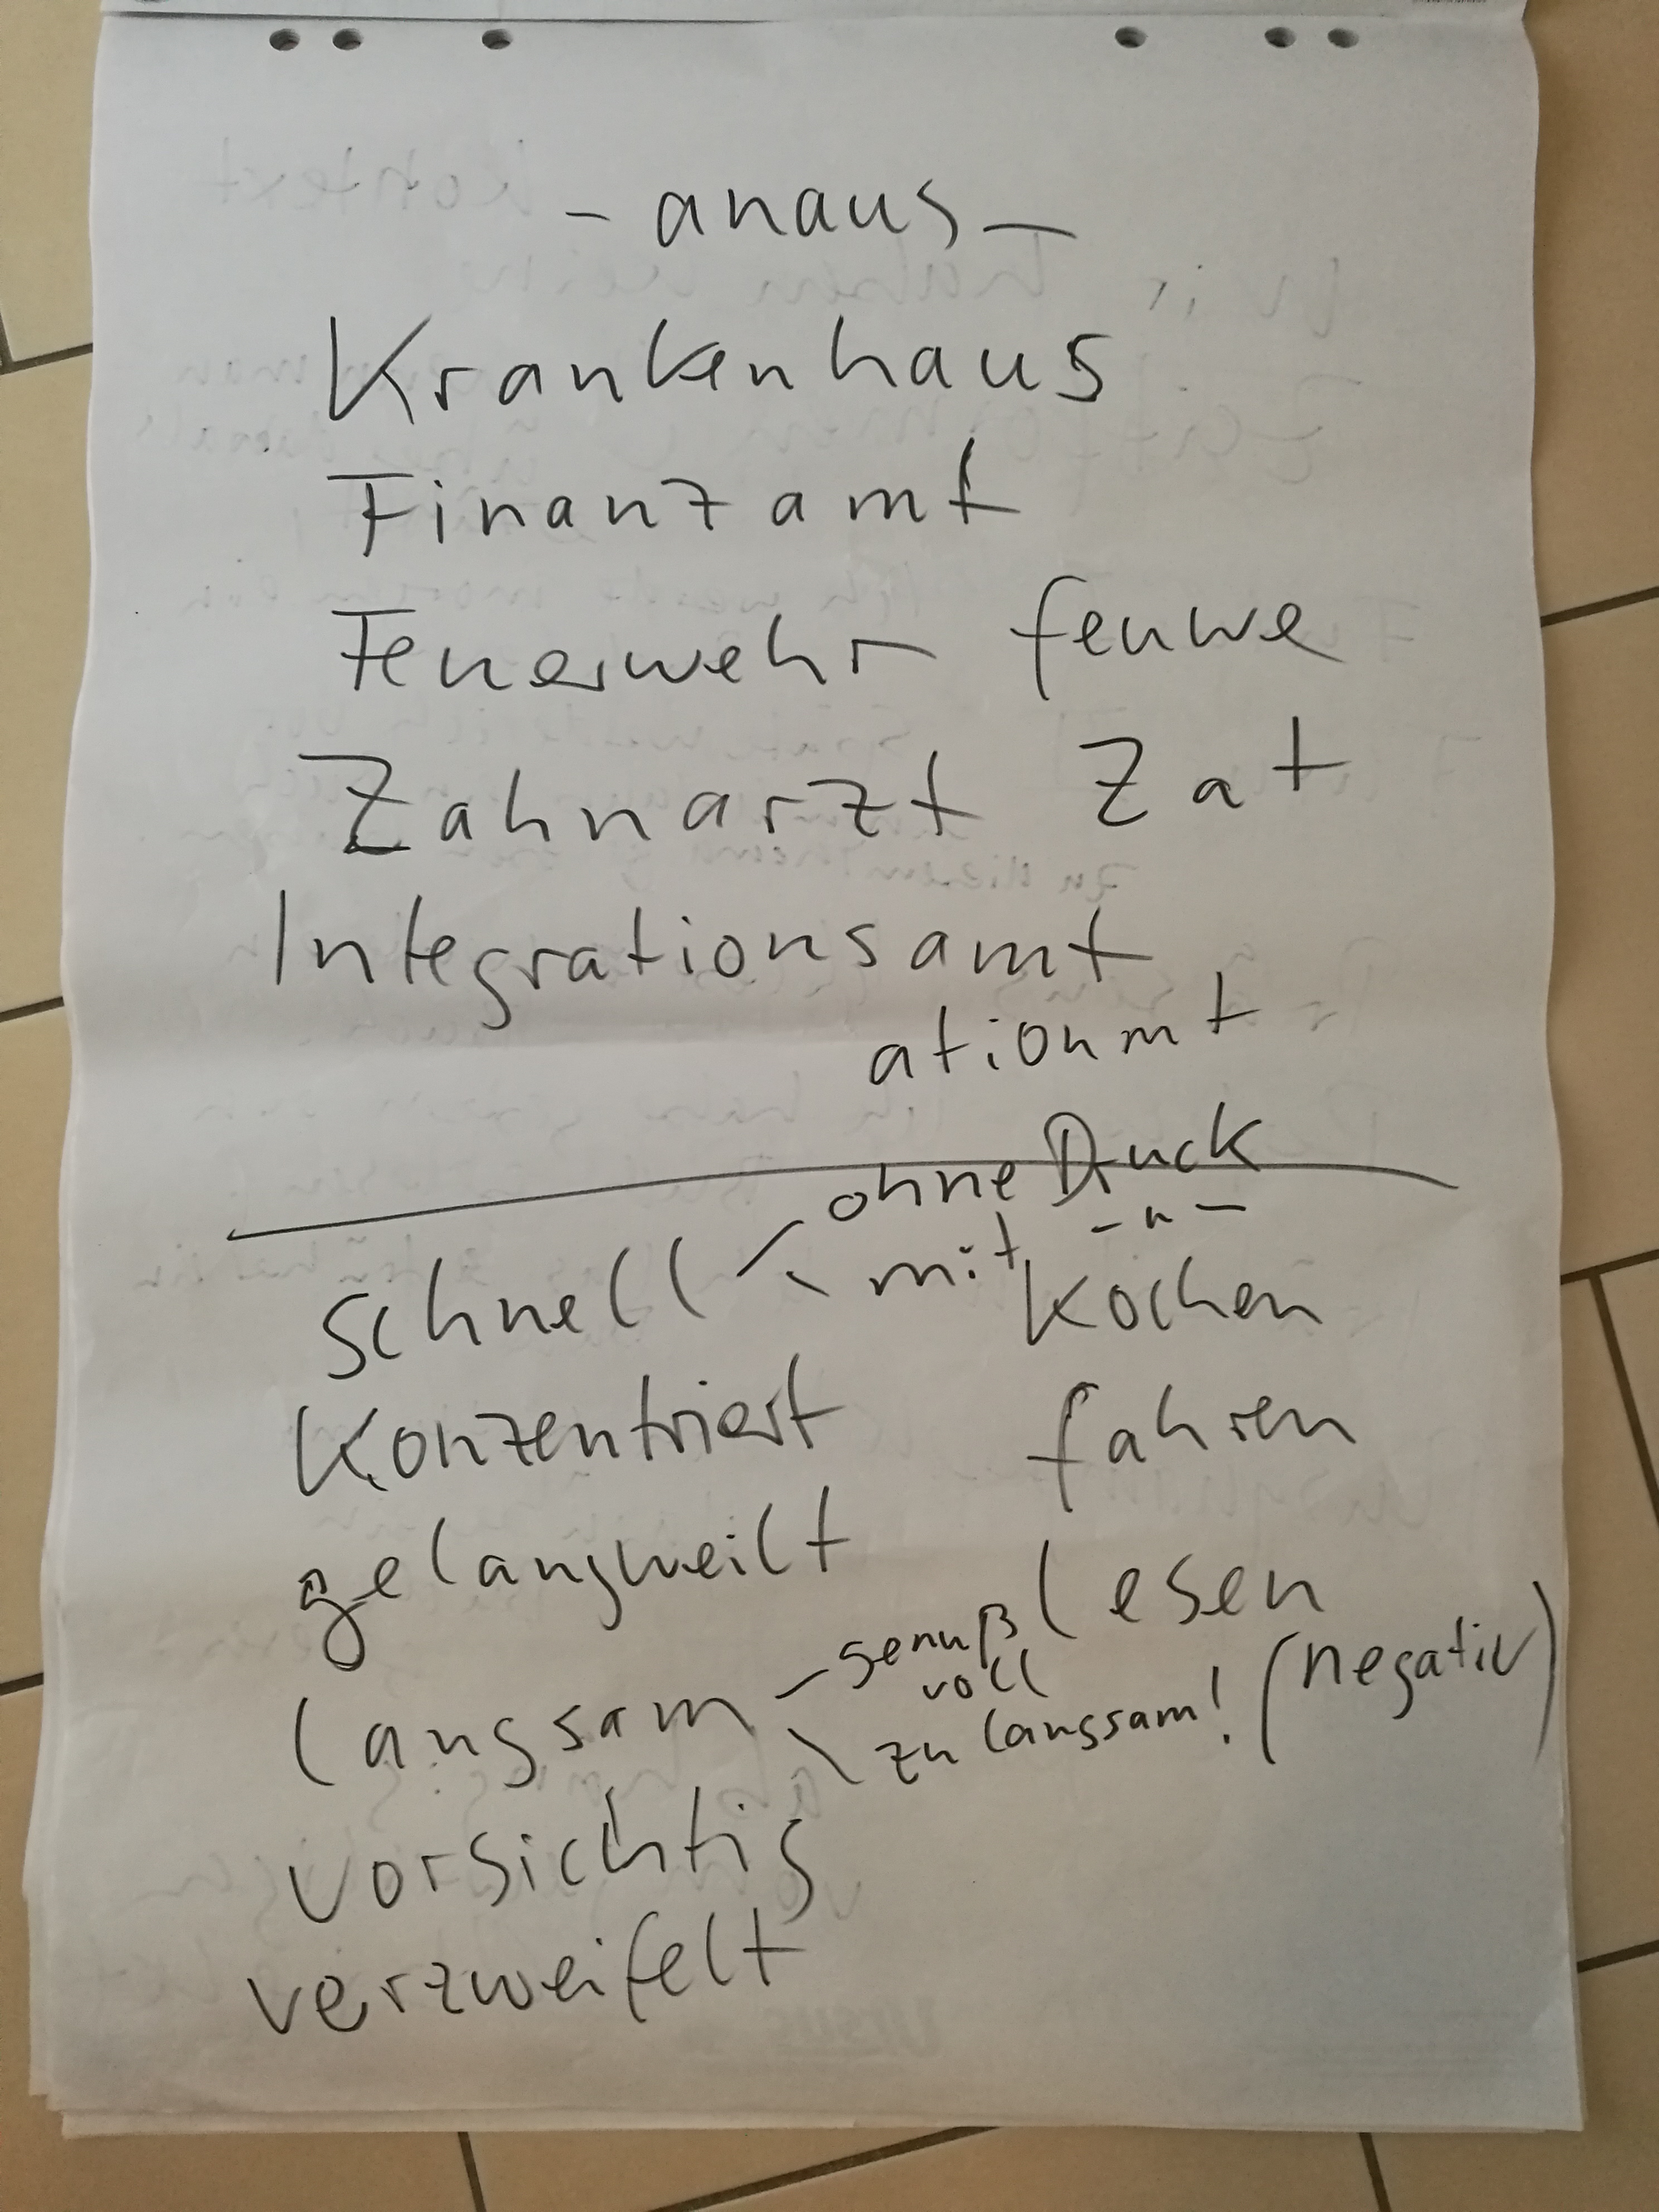 - anaus -
Krankenhaus
Finanzamt
Feuerwehr feuwe
Zahnarzt Zat
Integrationsamt
ationmt
ohne Druck
schnell mit - " -
kochen
konzentriert fahren
gelangweilt lesen
langsam genußvoll
zu langsam! (negativ)
vorsichtig
verzweifelt